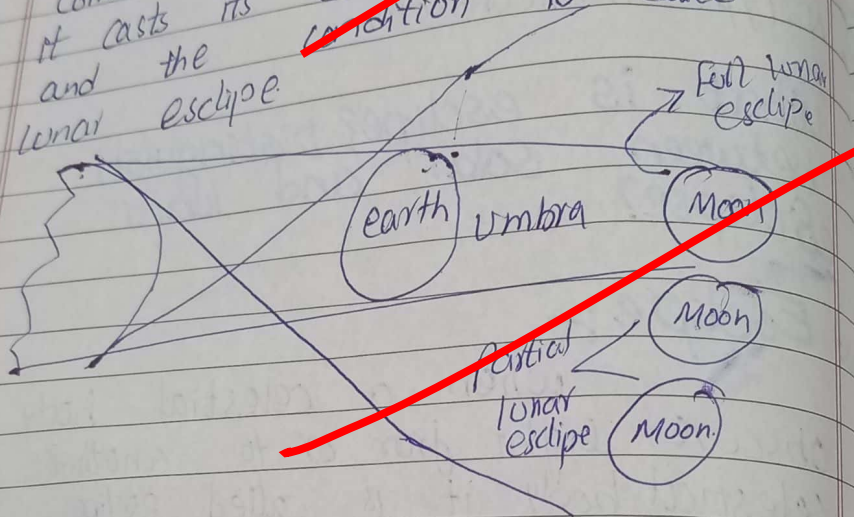 it casts its
and the condition
lunar esclipe.
Full lunar
esclipe
earth
Umbra
Moon
Moon
Partial
lunar
esclipe
Moon.